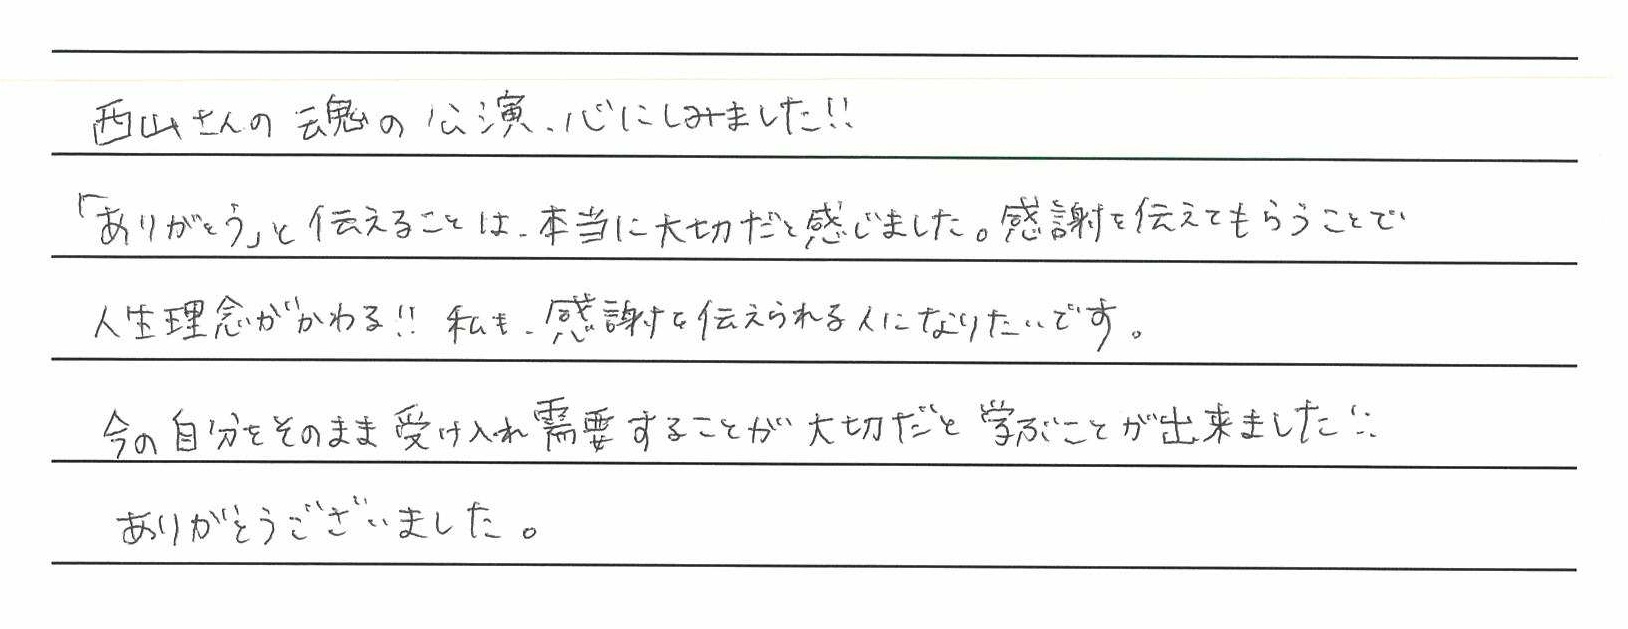 西山さんの魂の公演、心にしみました!!
「ありがとう」と伝えることは、本当に大切だと感じました。感謝を伝えてもらうことで
人生理念がかわる!! 私も、感謝を伝えられる人になりたいです。
今の自分をそのまま受け入れ需要することが大切だと学ぶことが出来ました!!
ありがとうございました。